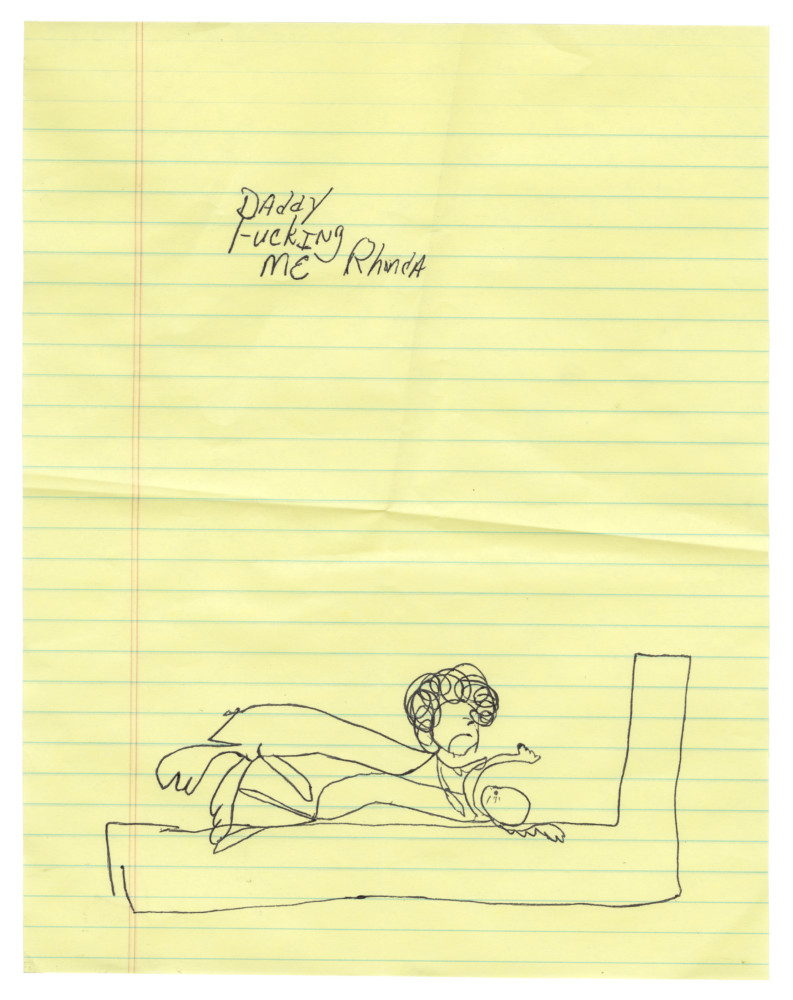 DAddy
FuckINg
ME RhondA